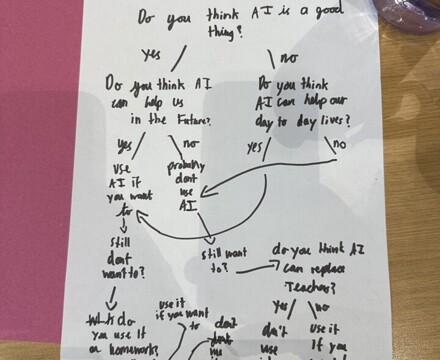 Do you think AI is a good
thing?
yes
no
Do you think AI
can help us
in the Future?
Do you think
AI can help our
day to day lives?
yes
no
yes
no
use
AI if
you want
to
probably
dont
use
AI
still
dont
want to?
still want
to?
do you think AI
can replace
Teachers?
yes
no
do
you use It
on homework?
use it
if you want
to
don't
dont
don't
use
use it
If you